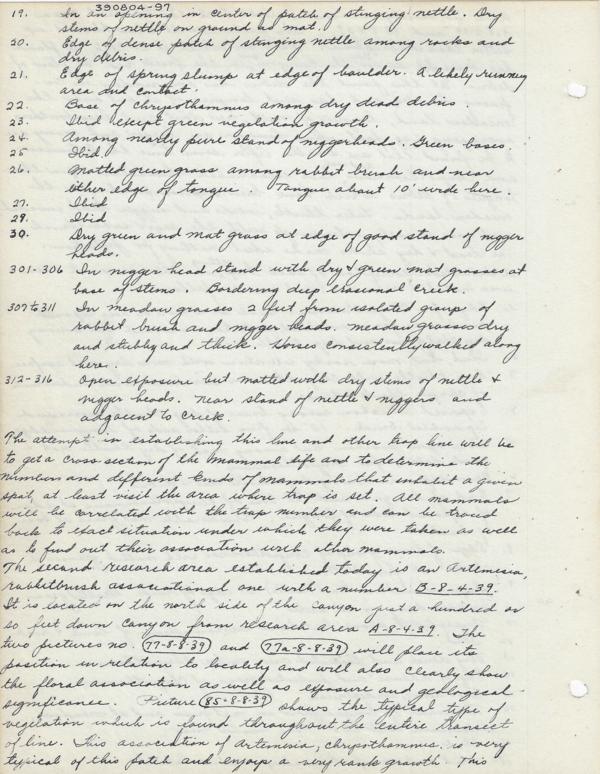 390804-97
19. In an opening in center of patch of stinging nettle. Dry
stems of nettle on ground as mat.
20. Edge of dense patch of stinging nettle among rocks and
dry debris.
21. Edge of spring slump at edge of boulder. A likely running
area and contact.
22. Base of chrysothamnus among dry dead debris.
23. Ibid except green vegetation growth.
24. Among nearly pure stand of niggerheads. Green bases.
25 Ibid.
26. Matted green grass among rabbit brush and near
other edge of tongue. Tongue about 10' wide here.
27. Ibid
29. Ibid
30. Dry green and mat grass at edge of good stand of nigger
heads.
301-306 In nigger head stand with dry & green mat grasses at
base of stems. Bordering deep erosional creek.
307 to 311 In meadow grasses 2 feet from isolated group of
rabbit brush and nigger heads. Meadow grasses dry
and stubby and thick. Horses consistently walked along
here.
312-316 Open exposure but matted with dry stems of nettle &
nigger heads. Near stand of nettle & niggers and
adjacent to creek.
The attempt in establishing this line and other trap line will be
to get a cross section of the mammal life and to determine the
numbers and different kinds of mammals that inhabit a given
spot, at least visit the area where trap is set. All mammals
will be correlated with the trap number and can be traced
back to exact situation under which they were taken as well
as to find out their association with other mammals.
The second research area established today is an Artemisia,
rabbitbrush associational one with a number B-8-4-39.
It is located on the north side of the canyon just a hundred or
so feet down canyon from research area A-8-4-39. The
two pictures no. 77-8-8-39 and 77a-8-8-39 will place its
position in relation to locality and will also clearly show
the floral association as well as exposure and geological
significance. Picture 85-8-8-39 shows the typical type of
vegetation which is found throughout the entire transect
of line. This association of Artemisia, chrysothamnus is very
typical of this patch and enjoys a very rank growth. This